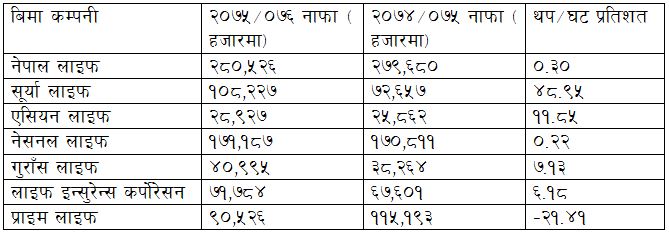 बिमा कम्पनी २०७५/०७६ नाफा ( २०७४/०७५ नाफा ( थप/घट प्रतिशत
हजारमा) हजारमा)
नेपाल लाइफ २८०,५२६ २७९,६८० ०.३०
सूर्या लाइफ १०८,२२७ ७२,६५७ ४८.९५
एसियन लाइफ २८,९२७ २५,८६२ ११.८५
नेसनल लाइफ १७१,१८७ १७०,८११ ०.२२
गुराँस लाइफ ४०,९९५ ३८,२६४ ७.१३
लाइफ इन्सुरेन्स कर्पोरेसन ७१,७८४ ६७,६०१ ६.१८
प्राइम लाइफ ९०,५२६ ११५,१९३ -२१.४१